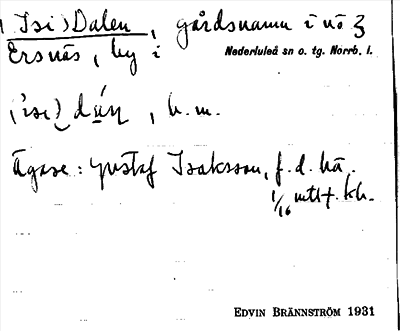 (Isi)Dalen, gårdsnamn i nö 3
Ersnäs, by i Nederluleå sn o. tg. Norrb. l.
('isi) , h.m.
Ägare: Gustaf Isaksson, f. d. hä.
1/16 mtl f. kh.
EDVIN BRÄNNSTRÖM 1931